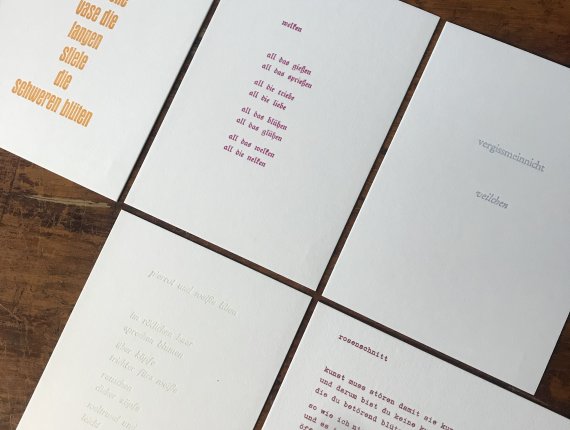 vase die
langen
stiele
die
schweren blüten
welken
all das gießen
all das sprießen
all die triebe
all die liebe
all das blühen
all das glühen
all das welken
all die nelken
vergissmeinnicht
veilchen
pierrot und weiße lilien
im rötlichen haar
sprechen blumen
über köpfe
trichter fürs weiße
rauschen
rosenschnitt
kunst muss stören damit sie
und darum bist du keine
die du betörend
so wie ich
und es